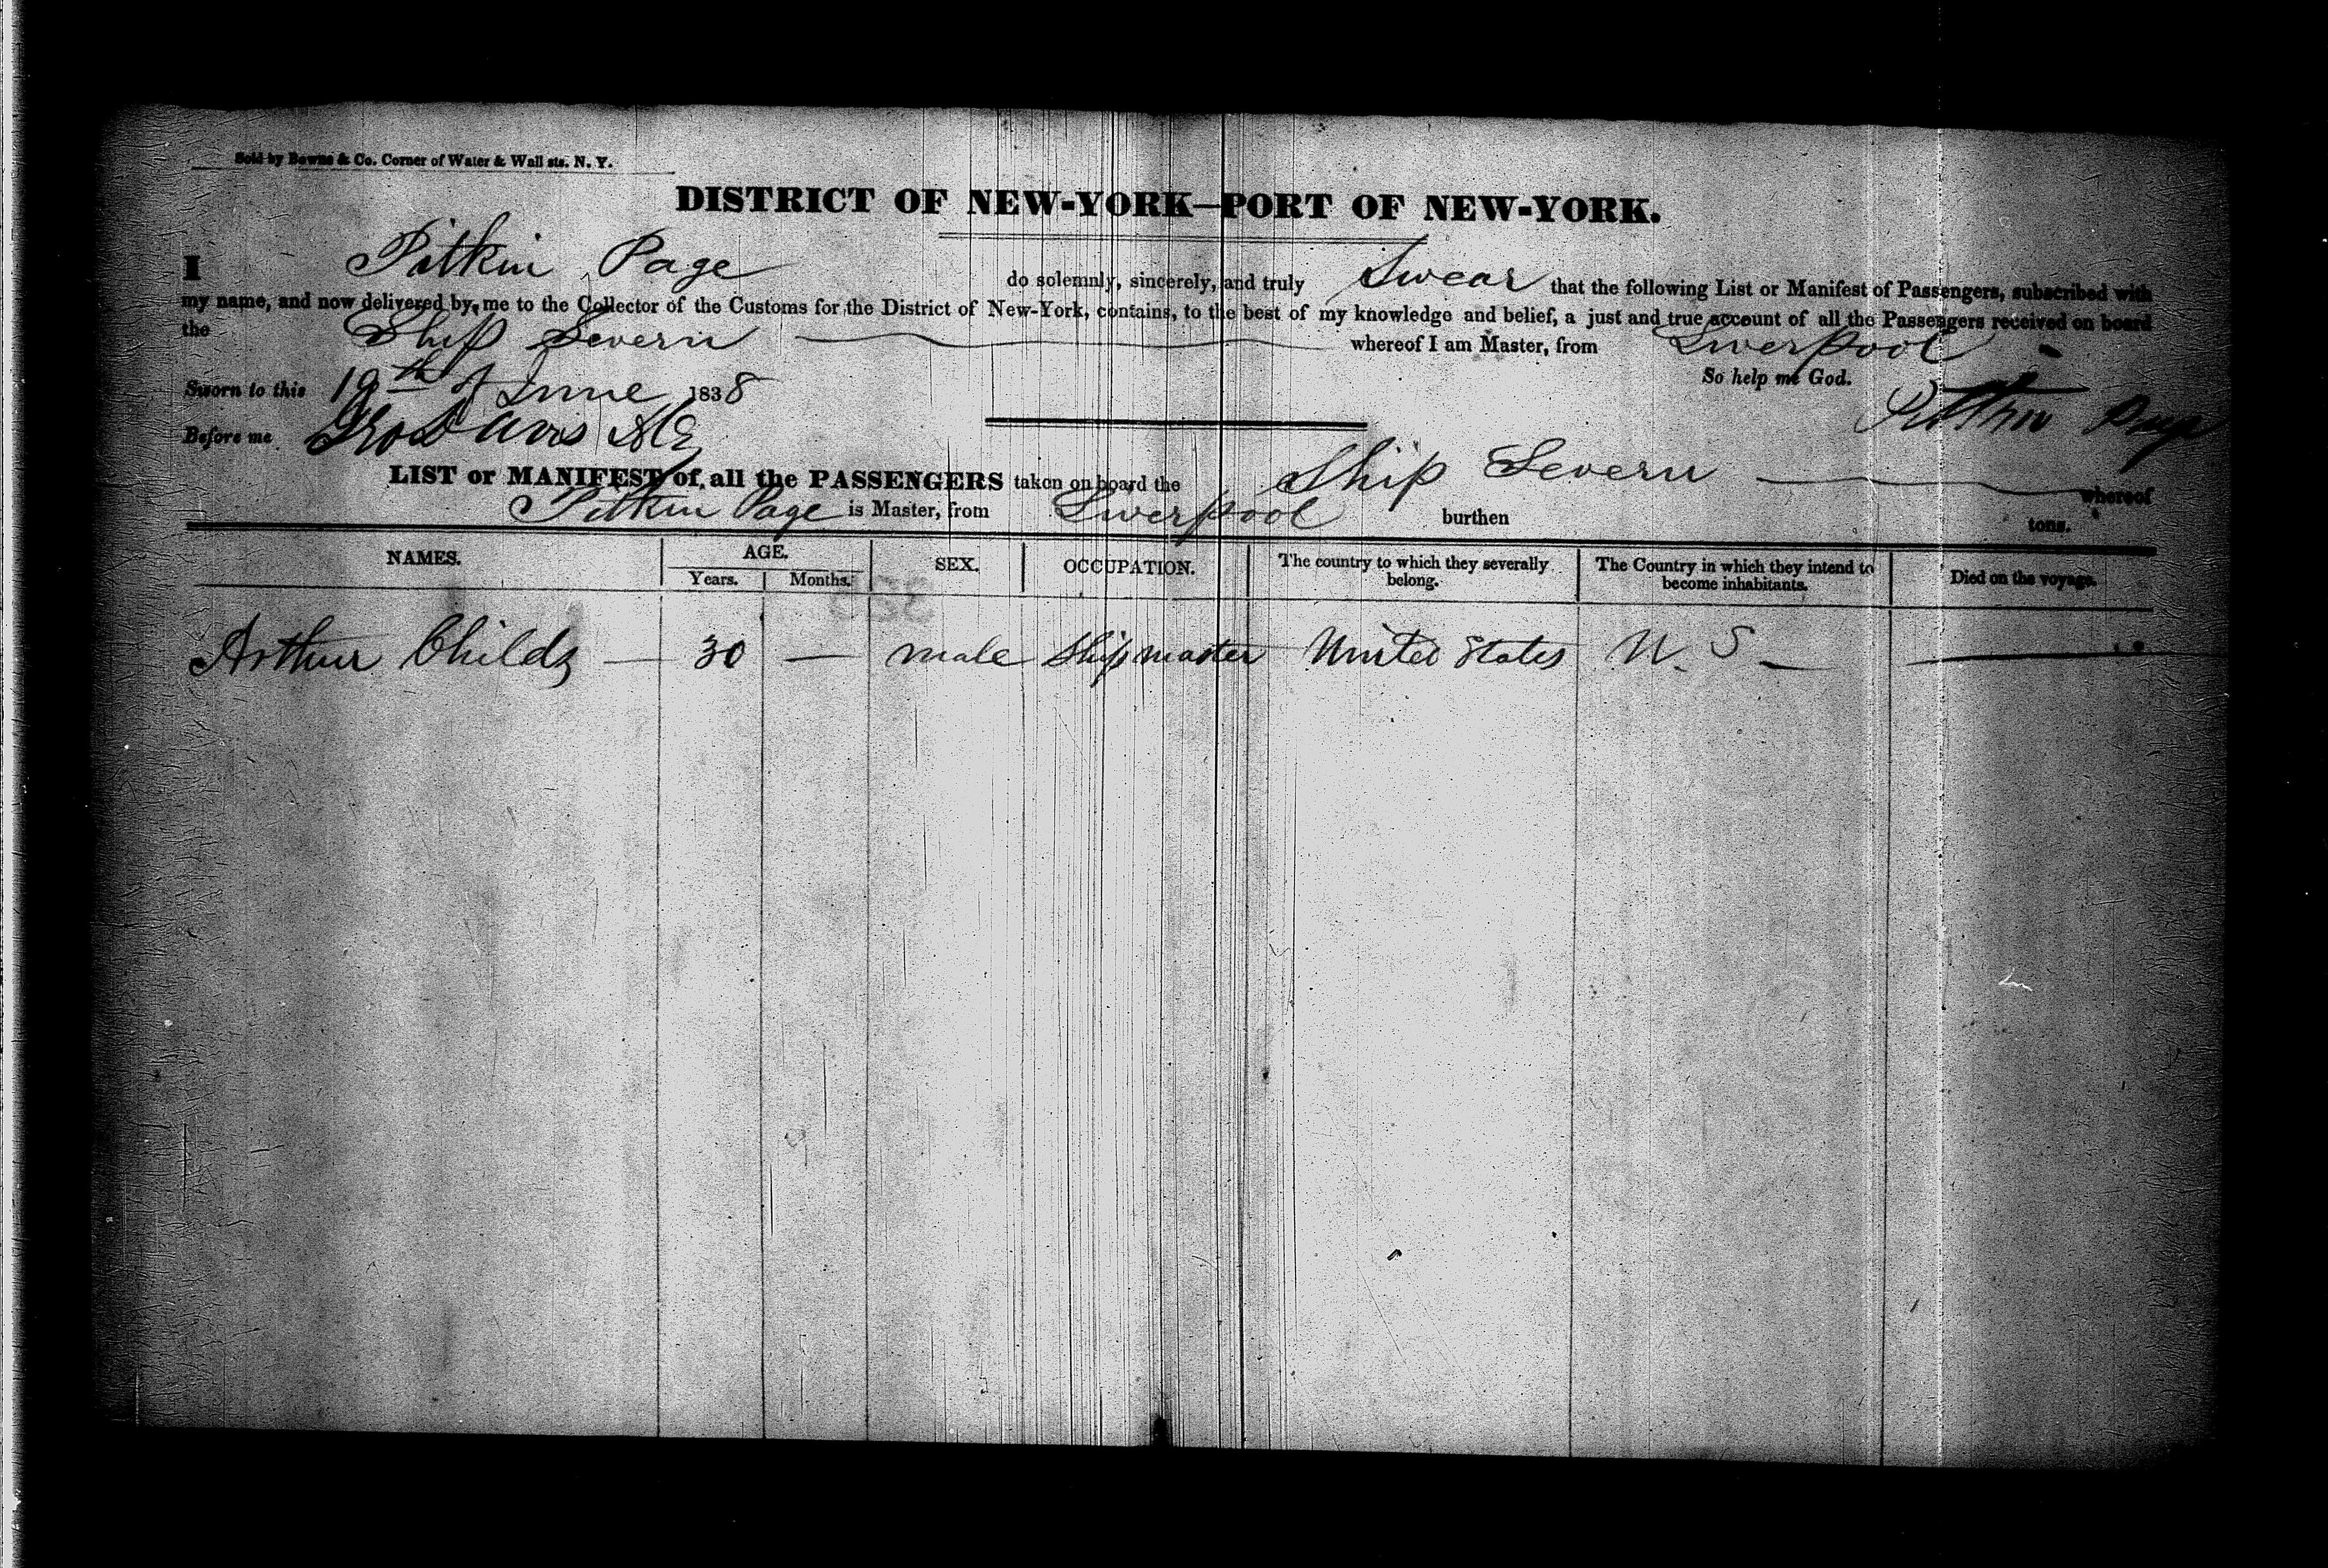 Sold by Bowne & Co. Corner of Water & Wall sts. N. Y.
DISTRICT OF NEW-YORK—PORT OF NEW-YORK.
I Pitkin Page do solemnly, sincerely, and truly Swear that the following List or Manifest of Passengers, subscribed with
my name, and now delivered by me to the Collector of the Customs for the District of New-York, contains, to the best of my knowledge and belief, a just and true account of all the Passengers received on board
the Ship Severn whereof I am Master, from Liverpool
So help me God.
Sworn to this 19th of June 1838
Pitkin Page
Before me Geo Davis
LIST or MANIFEST of all the PASSENGERS taken on board the Ship Severn whereof
Pitkin Page is Master, from Liverpool burthen tons.
NAMES. AGE. SEX. OCCUPATION. The country to which they severally belong. The Country in which they intend to become inhabitants. Died on the voyage.
Years. Months.
Arthur Childs — 30 — male Shipmaster United States U. S —